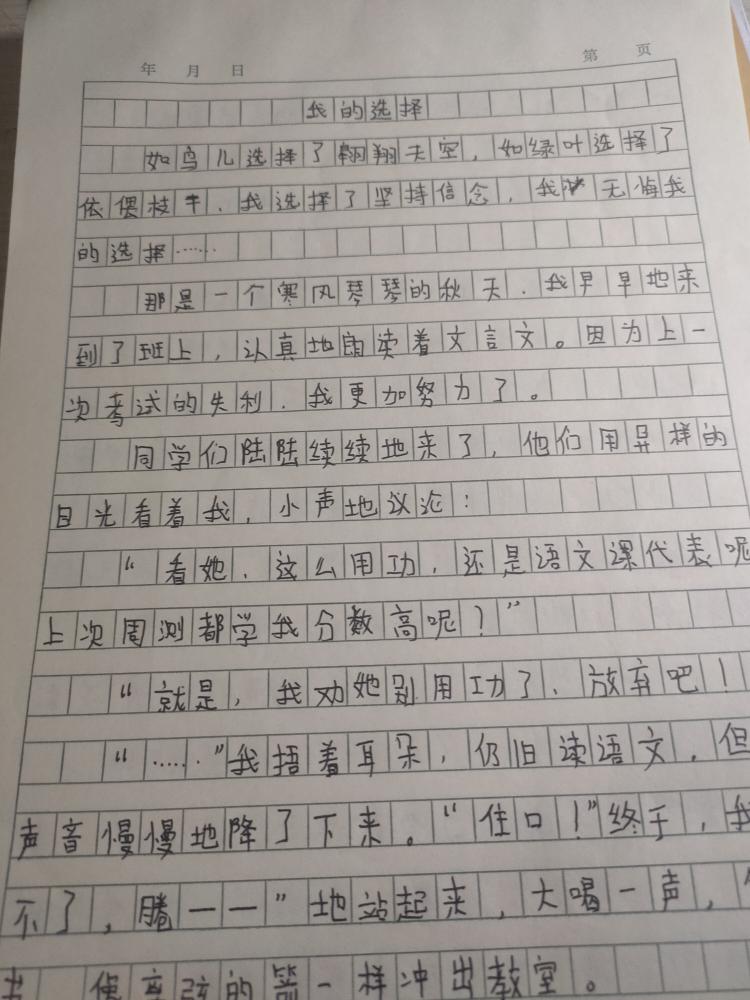 年 月 日 第 页
我的选择
如鸟儿选择了翱翔天空，如绿叶选择了
依偎枝干，我选择了坚持信念，我无悔我
的选择……
那是一个寒风琴琴的秋天，我早早地来
到了班上，认真地朗读着文言文。因为上一
次考试的失利，我更加努力了。
同学们陆陆续续地来了，他们用异样的
目光看着我，小声地议论：
“看她，这么用功，还是语文课代表呢
上次周测都学我分数高呢？”
“就是，我劝她别用功了，放弃吧！
“……”我捂着耳朵，仍旧读语文，但
声音慢慢地降了下来。“住口！”终于，我
不了，腾——”地站起来，大喝一声，
的箭一样冲出教室。